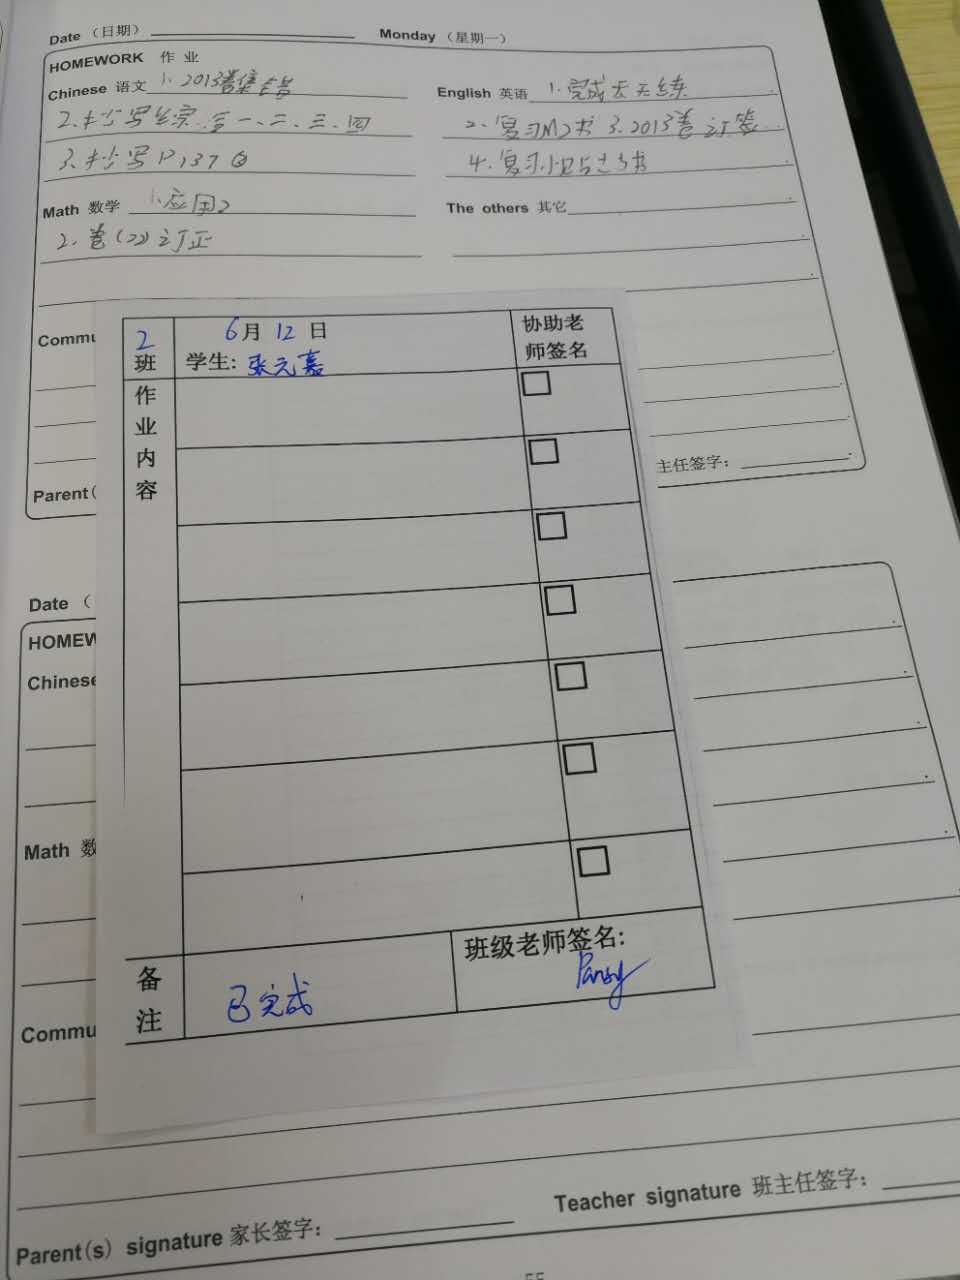 Date （日期） Monday （星期一）
HOMEWORK 作 业
Chinese 语文 1. 2013卷集错
2.抄写 一、二、三、四
3.抄写P137
Math 数学 1.应用2
2.卷(22)订正
English 英语 1.完成天天练
2.复习M2书 3.2013卷订签
4.复习
The others 其它
Commu
Parent(
主任签字：
2班
6月12日
学生: 张元嘉
协助老师签名
作业内容
备注
已完成
班级老师签名:
Pansy
Date （
HOMEW
Chinese
Math 数
Commu
Parent(s) signature 家长签字：
Teacher signature 班主任签字：